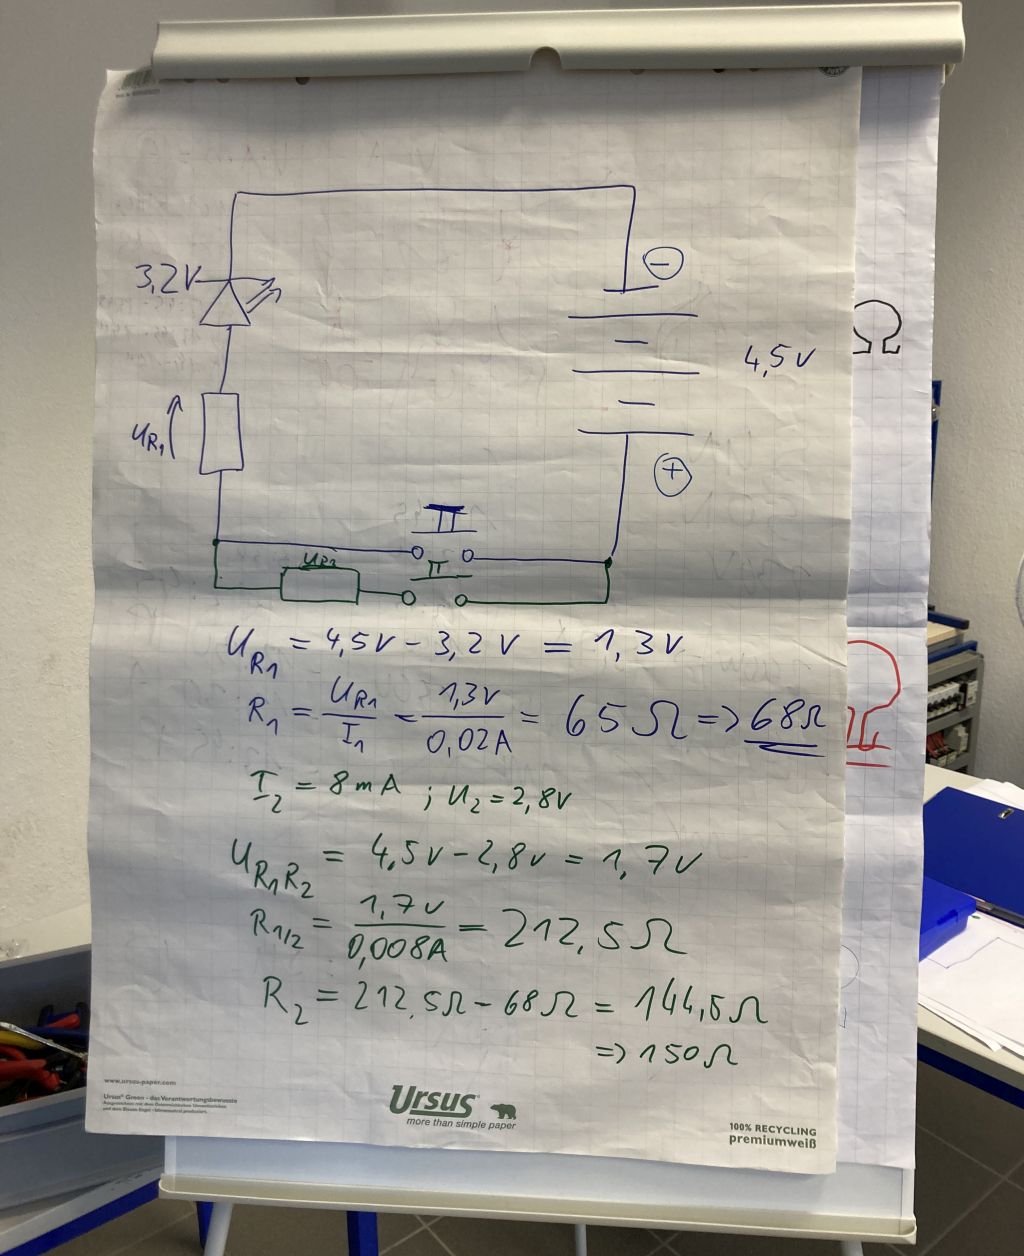 3,2V
⊖
4,5V
U_R1
⊕
U_R2
U_R1 = 4,5V - 3,2V = 1,3V
R_1 = U_R1/I_1 = 1,3V/0,02A = 65Ω => 68Ω
I_2 = 8mA ; U_2 = 2,8V
U_R1R2 = 4,5V - 2,8V = 1,7V
R_1/2 = 1,7V/0,008A = 212,5Ω
R_2 = 212,5Ω - 68Ω = 144,5Ω
=> 150Ω
Ω
Ω
www.ursus-paper.com
Ursus® Green - das Verantwortungsbewusste
Ursus®
more than simple paper
100% RECYCLING
premiumweiß